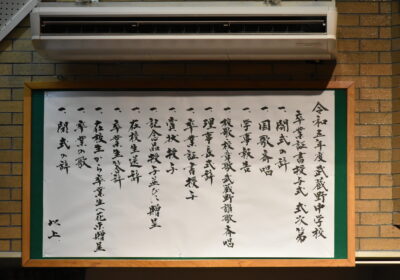 令和五年度武蔵野中学校
卒業証書授与式 式次第
一、開式の辞
一、国歌斉唱
一、学事報告
一、校歌・校章歌・武蔵野讃歌斉唱
一、理事長式辞
一、卒業証書授与
一、賞状授与
一、記念品授与並びに贈呈
一、在校生送辞
一、卒業生答辞
一、在校生から卒業生へ花束贈呈
一、卒業の歌
一、閉式の辞
以上